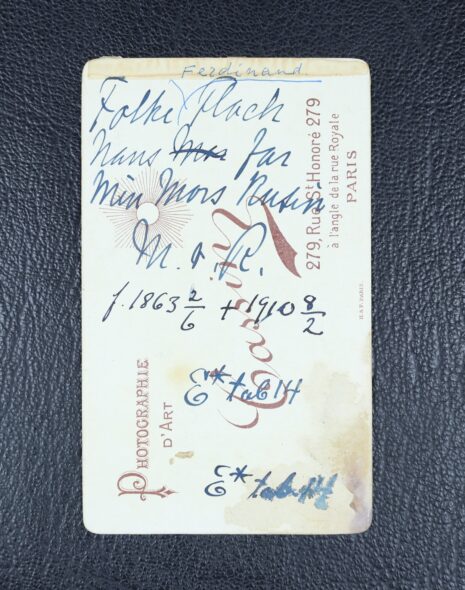 Ferdinand
Folke Ploch
hans ~~Mor~~ far
Min Mors Kusin
M. v. R.
f. 1863 2/6 + 1910 8/2
E* tab 14
E* tab 14
PHOTOGRAPHIE
D'ART
279, Rue St Honoré 279
à l'angle de la rue Royale
PARIS